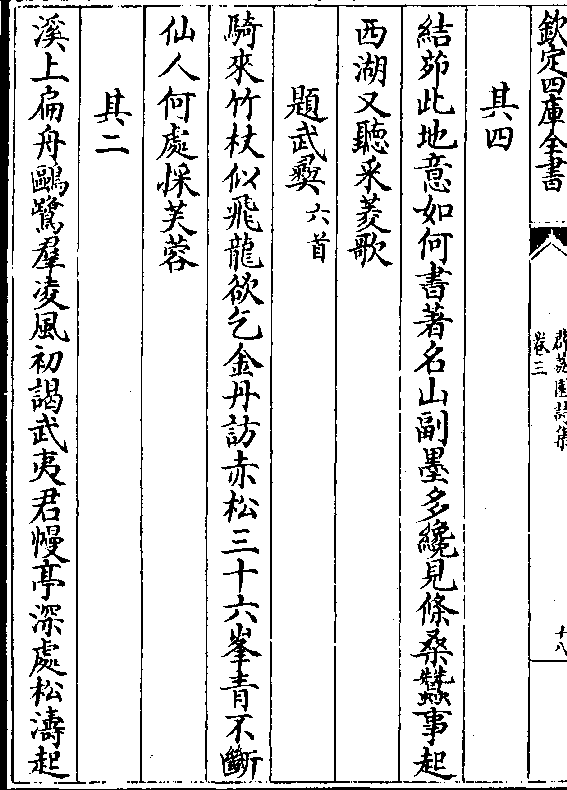 欽定四庫全書
薛荔園詩集
卷三
十八
其四
結茆此地意如何書著名山副墨多纔見條桑蠶事起
西湖又聽采菱歌
題武彝六首
騎來竹杖似飛龍欲乞金丹訪赤松三十六峯青不斷
仙人何處採芙蓉
其二
溪上扁舟鷗鷺羣凌風初謁武夷君幔亭深處松濤起